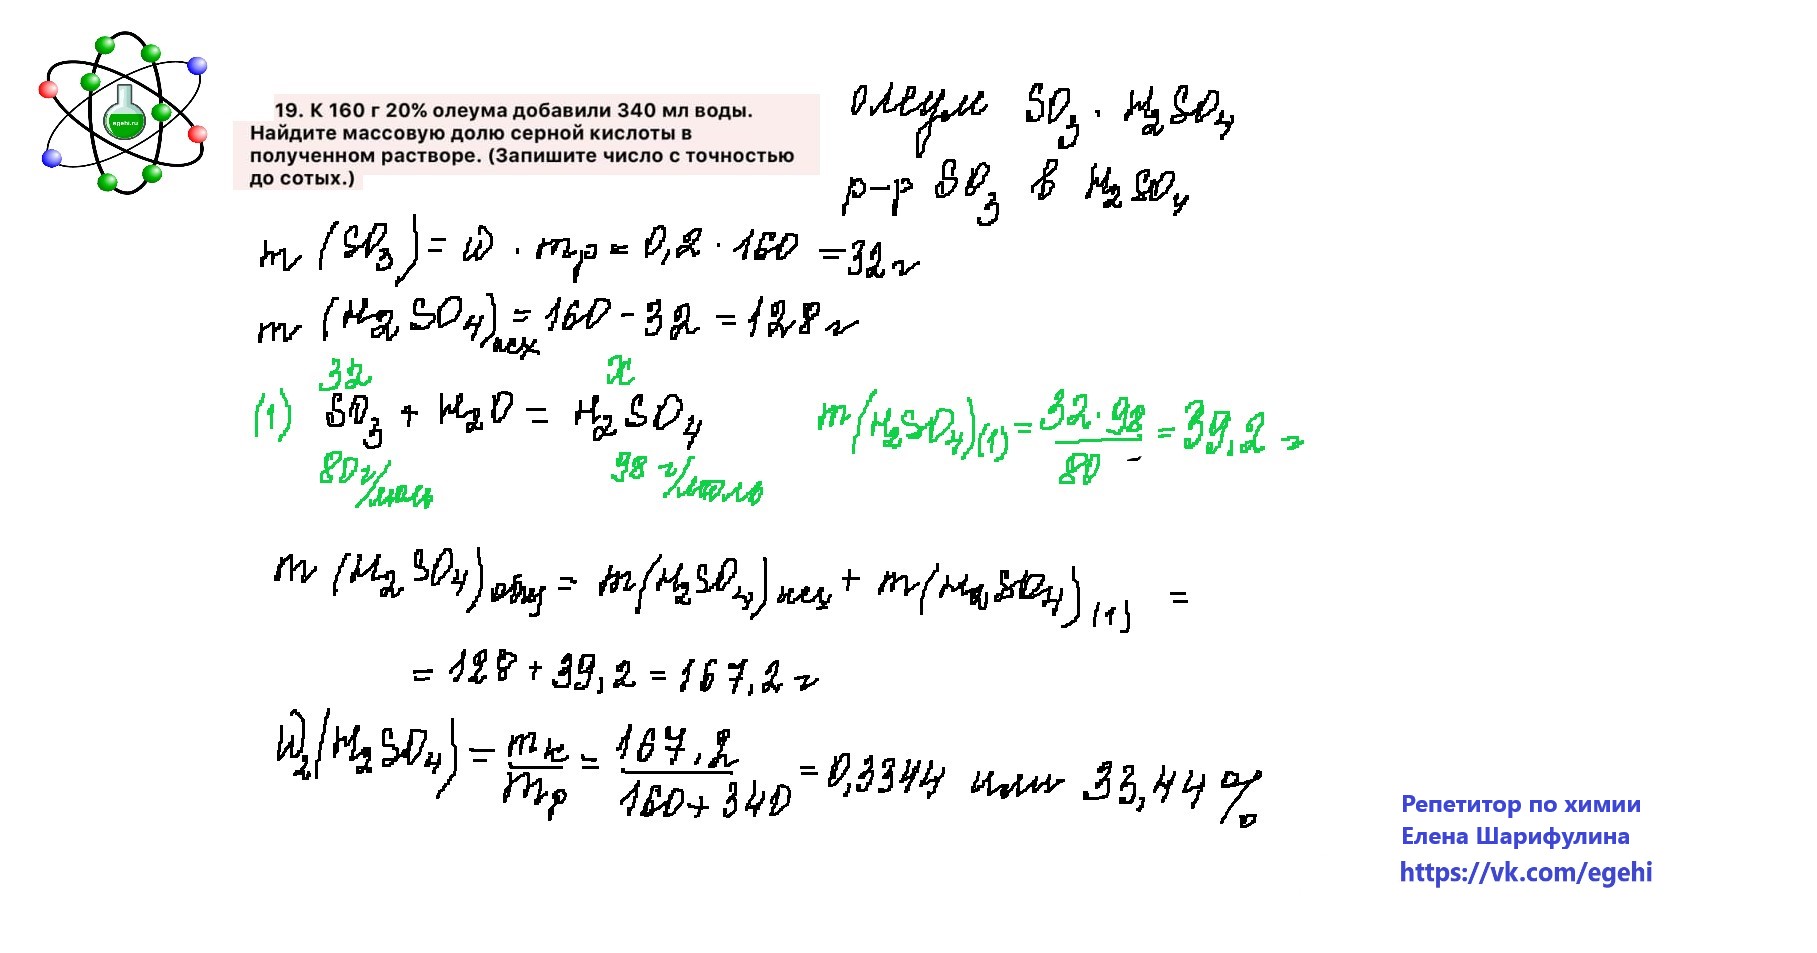 egehi.ru
19. К 160 г 20% олеума добавили 340 мл воды.
Найдите массовую долю серной кислоты в
полученном растворе. (Запишите число с точностью
до сотых.)
олеум SO3 · H2SO4
р-р SO3 в H2SO4
m (SO3) = ω · mр = 0,2 · 160 = 32 г
m (H2SO4)исх = 160 - 32 = 128 г
32 x
(1) SO3 + H2O = H2SO4 m(H2SO4)(1) = 32·98/80 = 39,2 г
80 г/моль 98 г/моль
m (H2SO4)общ = m(H2SO4)исх + m(H2SO4)(1) =
= 128 + 39,2 = 167,2 г
ω2(H2SO4) = mк/mр = 167,2/160+340 = 0,3344 или 33,44%
Репетитор по химии
Елена Шарифулина
https://vk.com/egehi